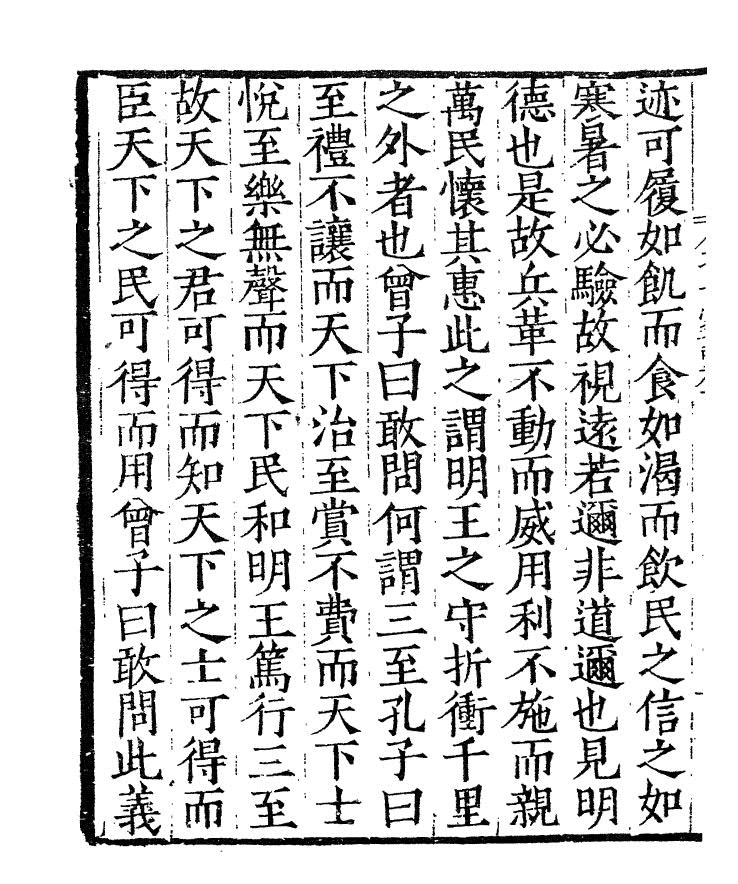 迹可履如飢而食如渴而飲民之信之如
寒暑之必驗故視遠若邇非道邇也見明
德也是故兵革不動而威用利不施而親
萬民懷其惠此之謂明王之守折衝千里
之外者也曾子曰敢問何謂三至孔子曰
至禮不讓而天下治至賞不費而天下士
悅至樂無聲而天下民和明王篤行三至
故天下之君可得而知天下之士可得而
臣天下之民可得而用曾子曰敢問此義